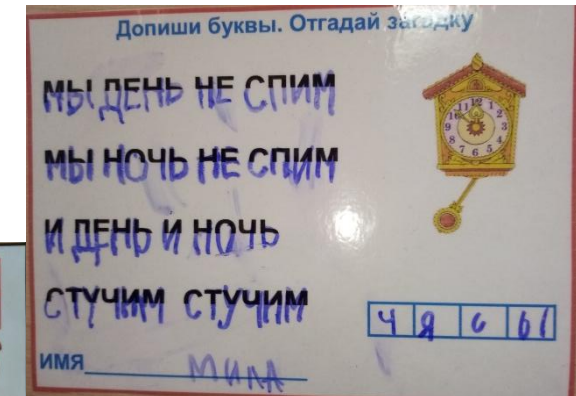 Допиши буквы. Отгадай загадку
МЫ ДЕНЬ НЕ СПИМ
МЫ НОЧЬ НЕ СПИМ
И ДЕНЬ И НОЧЬ
СТУЧИМ СТУЧИМ
ЧЯСЫ
ИМЯ МИЛА